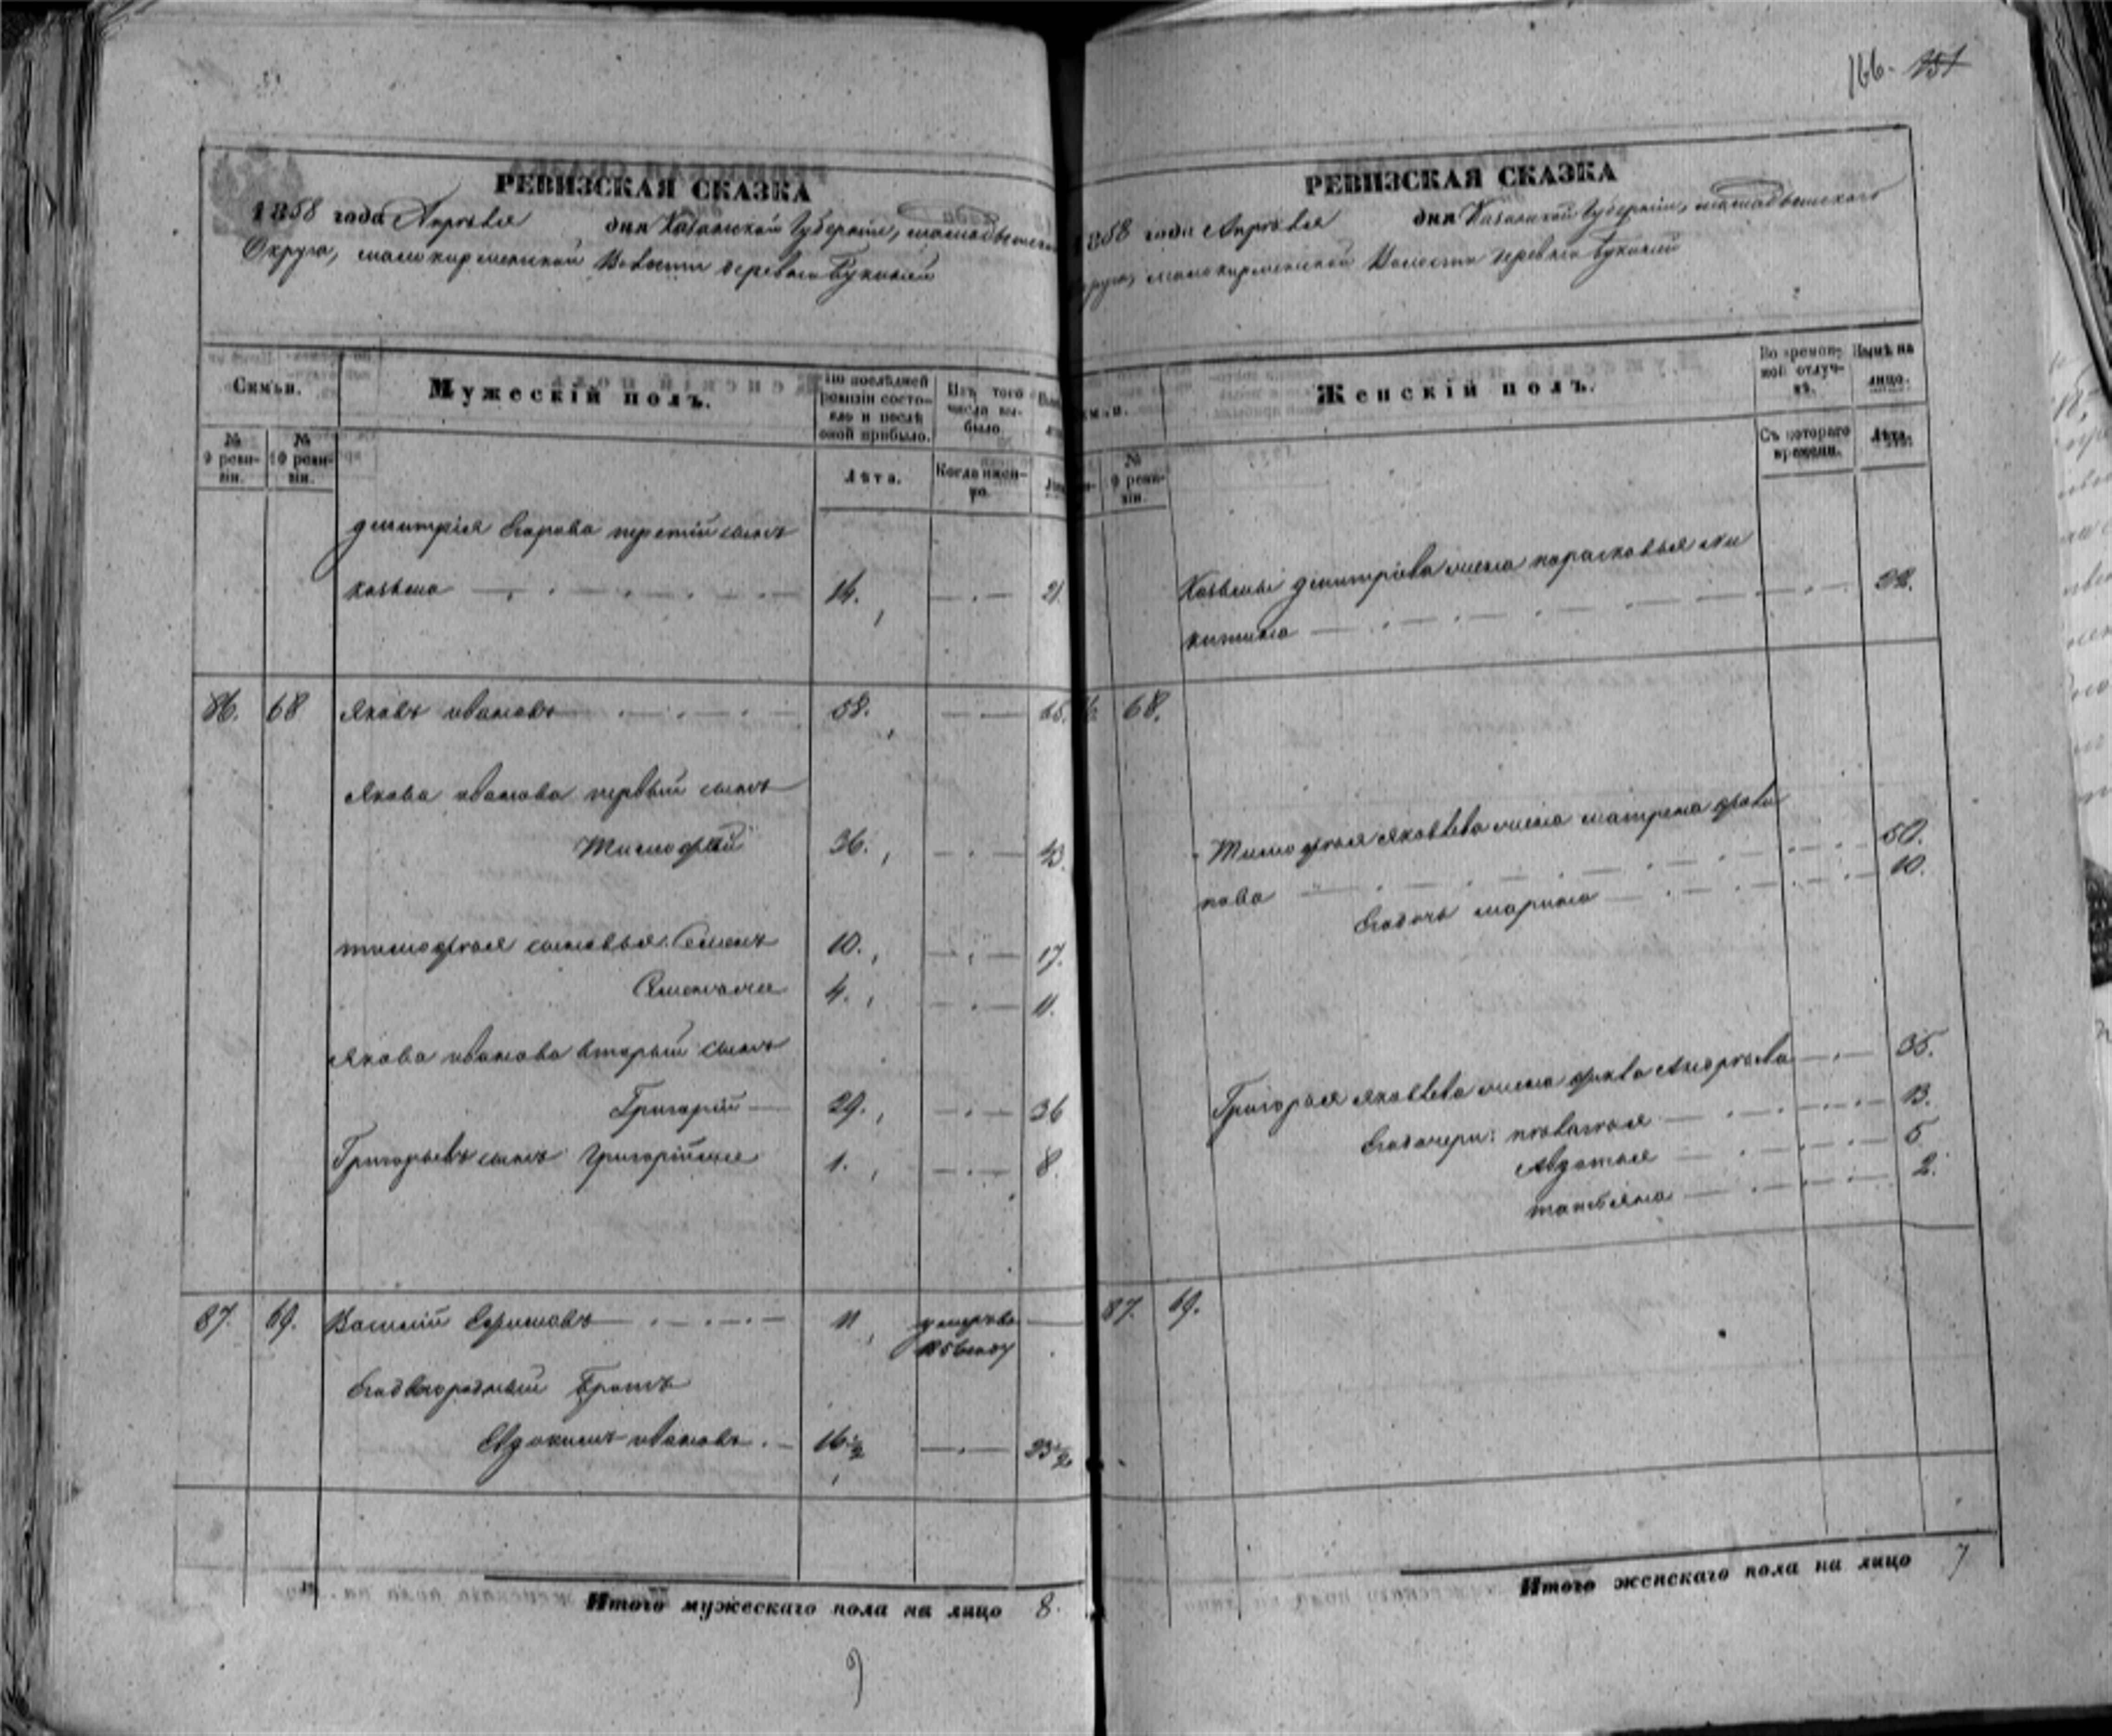 166. 151
РЕВИЗСКАЯ СКАЗКА
1858 года Апреля дня Казанской Губернии, мамадышскаго
Округа, малокирменской Волости деревни Букеней
Семьи.
Мужескій полъ.
По послѣдней ревизіи состояло и послѣ оной прибыло.
Изъ того числа выбыло.
№ 9 ревизіи.
№ 10 ревизіи.
Лѣта.
Когда именно.
димитрія Егорова третій сынъ
козьма 14. 21.
86. 68 Яковъ ивановъ 58. 65.
Якова иванова первый сынъ
Тимофей 36. 43.
тимофея сыновья: Семенъ 10. 17.
Семенъ же 4. 11.
Якова иванова вторый сынъ
Григорій 29. 36
Григорьевъ сынъ Григорій же 1. 8.
87. 69. Василий Ефимовъ 11 умеръ въ
1856 году
Его двоюродный братъ
Евдокимъ ивановъ 16½ 23½
Итого мужескаго пола на лицо 8.
9
РЕВИЗСКАЯ СКАЗКА
1858 года Апреля дня Казанской Губернии, мамадышскаго
округа, малокирменской Волости деревни Букеней
Женскій полъ.
Во временной отлучкѣ.
Нынѣ на лицо.
№ 9 ревизіи.
Съ котораго времени.
Лѣта.
Козьмы димитріева жена парасковья ни
китина 22.
68.
Тимофея Яковлева жена матрена
пова 50.
Его дочь марина 10.
Григорья Яковлева жена фекла 35.
Его дочери: 13.
Авдотья 5
татьяна 2.
87. 69.
Итого женскаго пола на лицо 7